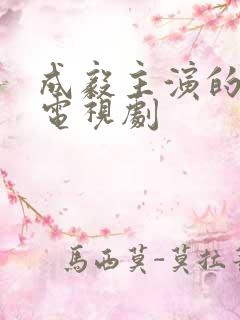 成毅主演的
電視劇
馬西莫-莫拉